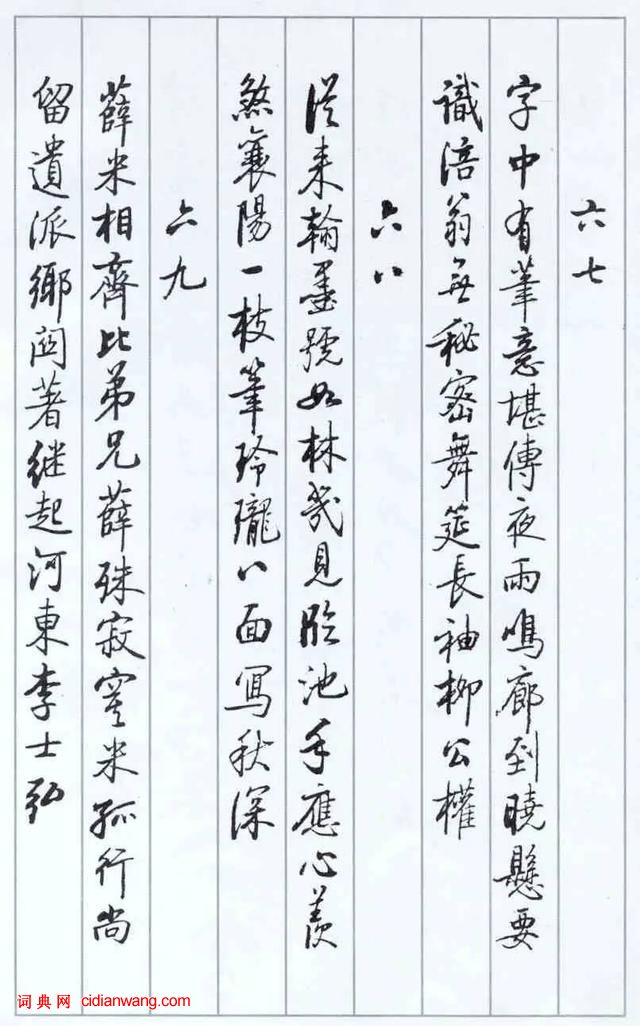 六七
字中有筆意堪傳夜雨鳴廊到曉懸要
識涪翁無秘密舞筵長袖柳公權
六八
從來翰墨號如林幾見臨池手應心羨
煞襄陽一枝筆玲瓏八面寫秋深
六九
薛米相齊比弟兄薛殊寂寞米孤行尚
留遺派鄉閭著继起河東李士弘
词典网 cidianwang.com